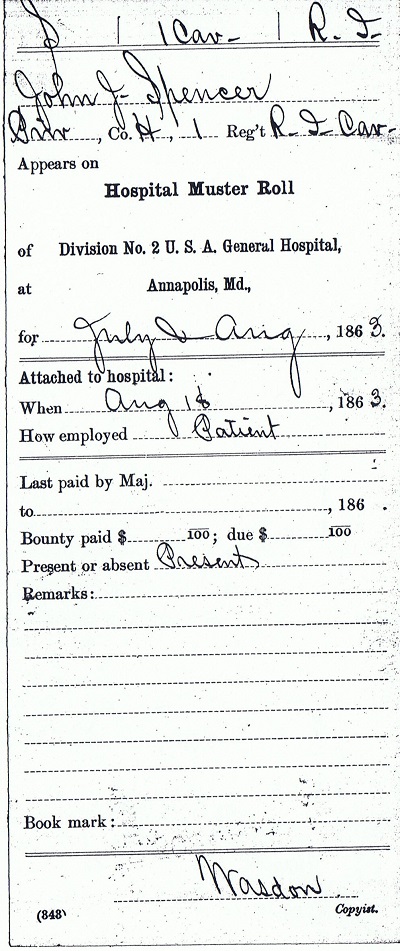 S | 1 Cav- | R. I.
John J. Spencer
Priv, Co. H, 1 Reg't R. I. Cav-
Appears on
Hospital Muster Roll
of Division No. 2 U. S. A. General Hospital,
at Annapolis, Md.,
for July & Aug, 1863.
Attached to hospital:
When Aug 18, 1863.
How employed Patient
Last paid by Maj.
to, 186 .
Bounty paid $ 100; due $ 100
Present or absent Present
Remarks:
Book mark:
Wasdon
(848) Copyist.